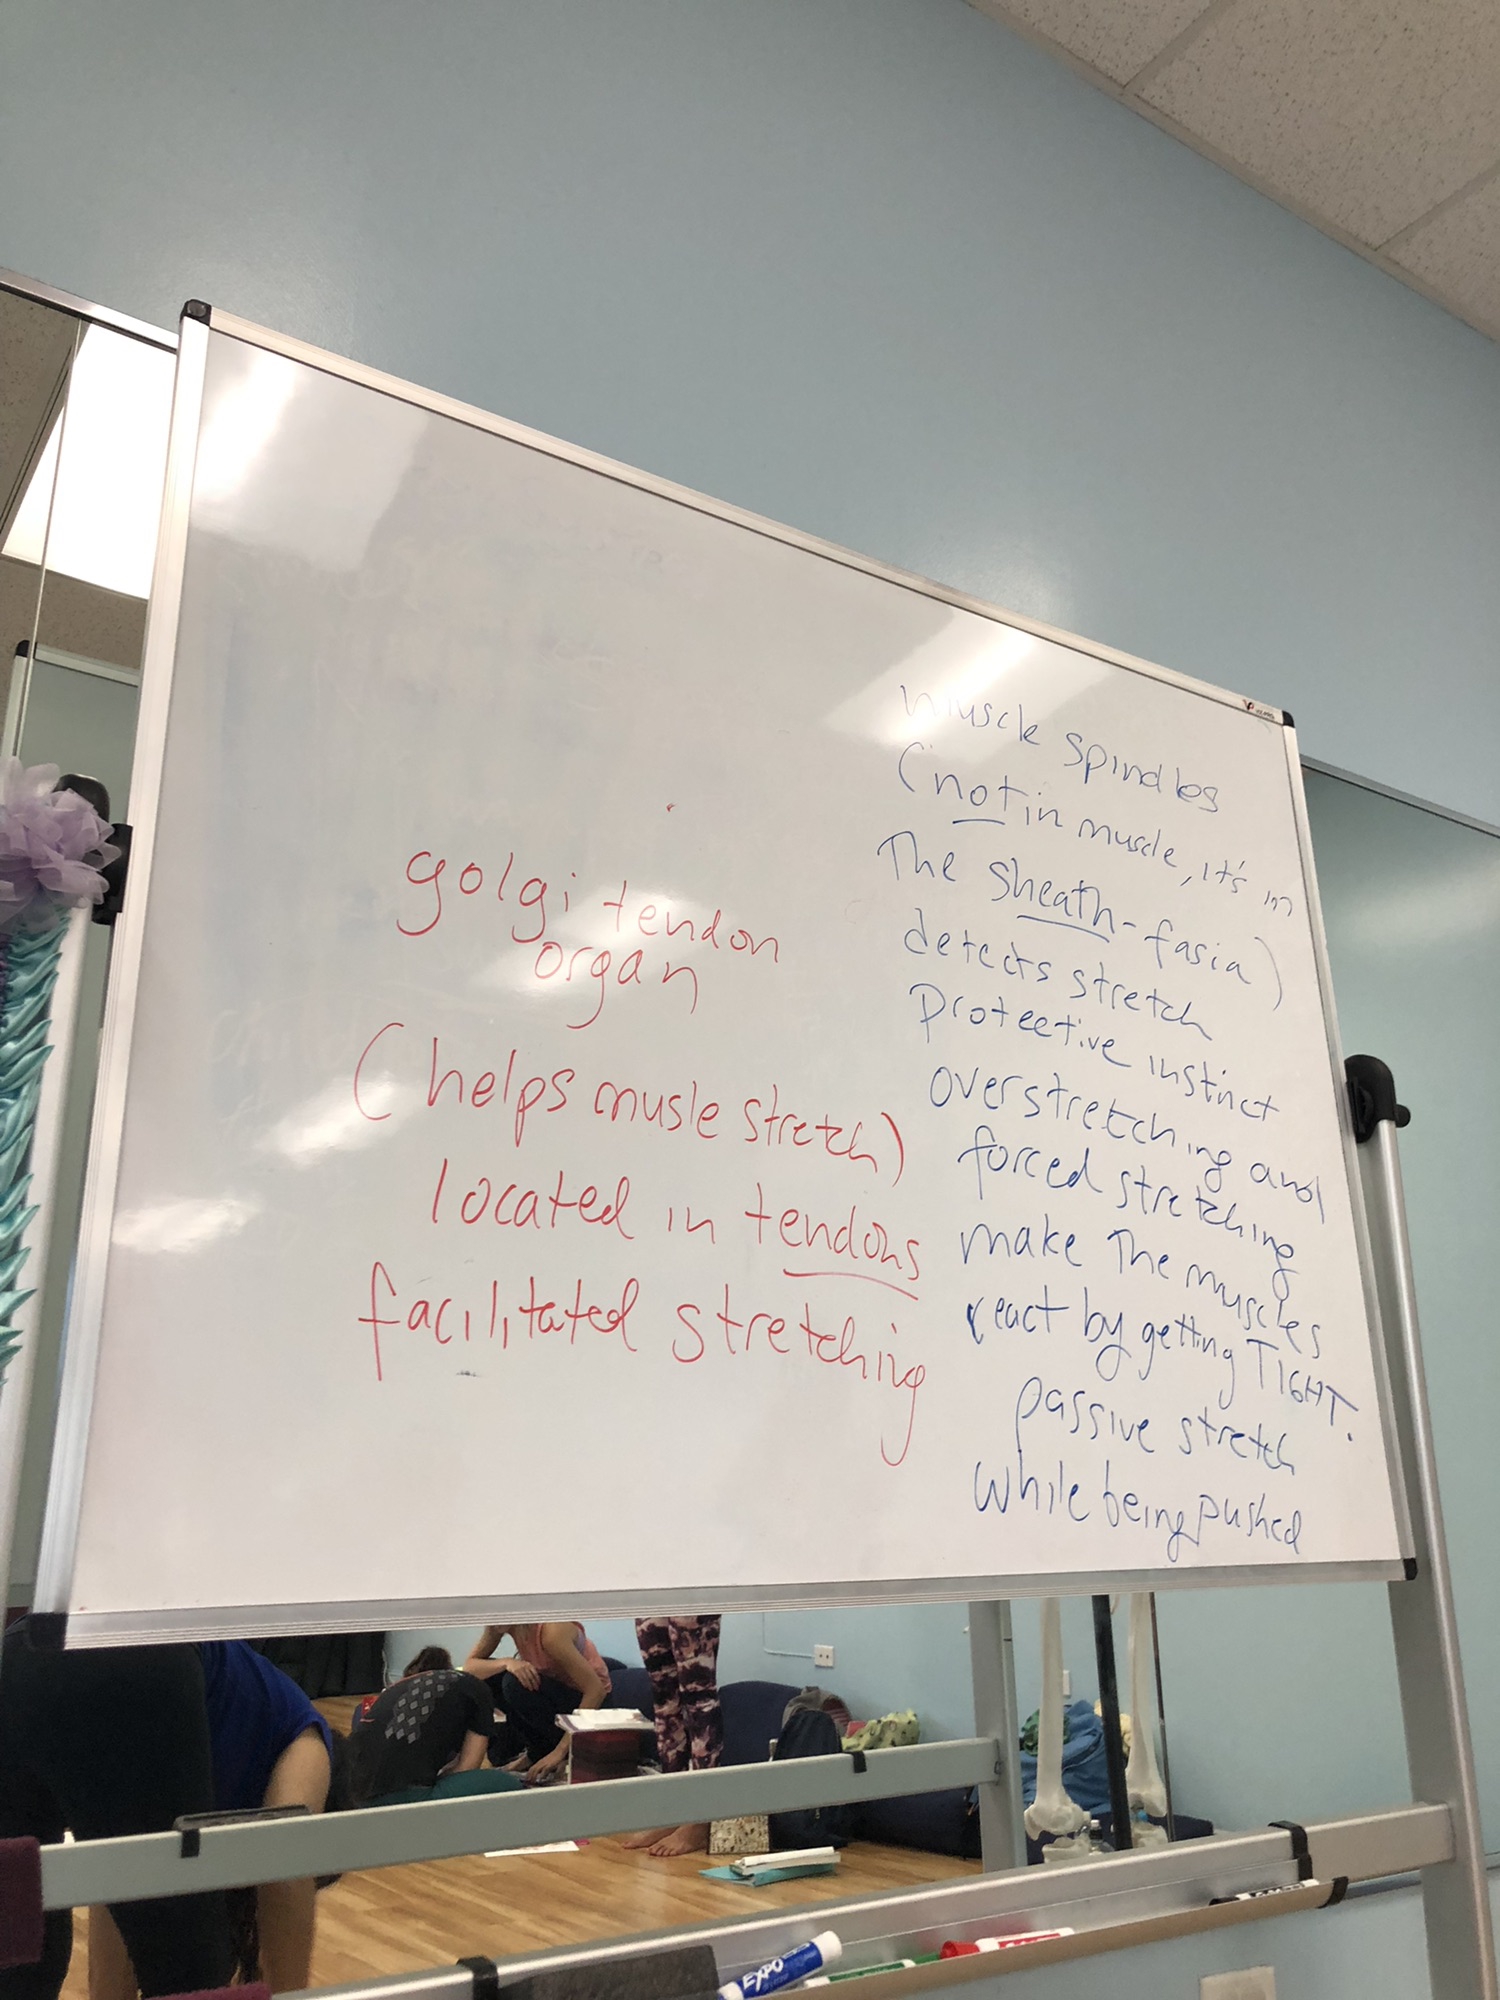 golgi tendon
organ
(helps musle stretch)
located in tendons
facilitated stretching
Muscle spindles
(not in muscle, it's in
The sheath - fasia)
detects stretch
Protective instinct
overstretching and
forced stretching
make the muscles
react by getting TIGHT.
passive stretch
while being pushed
EXPO